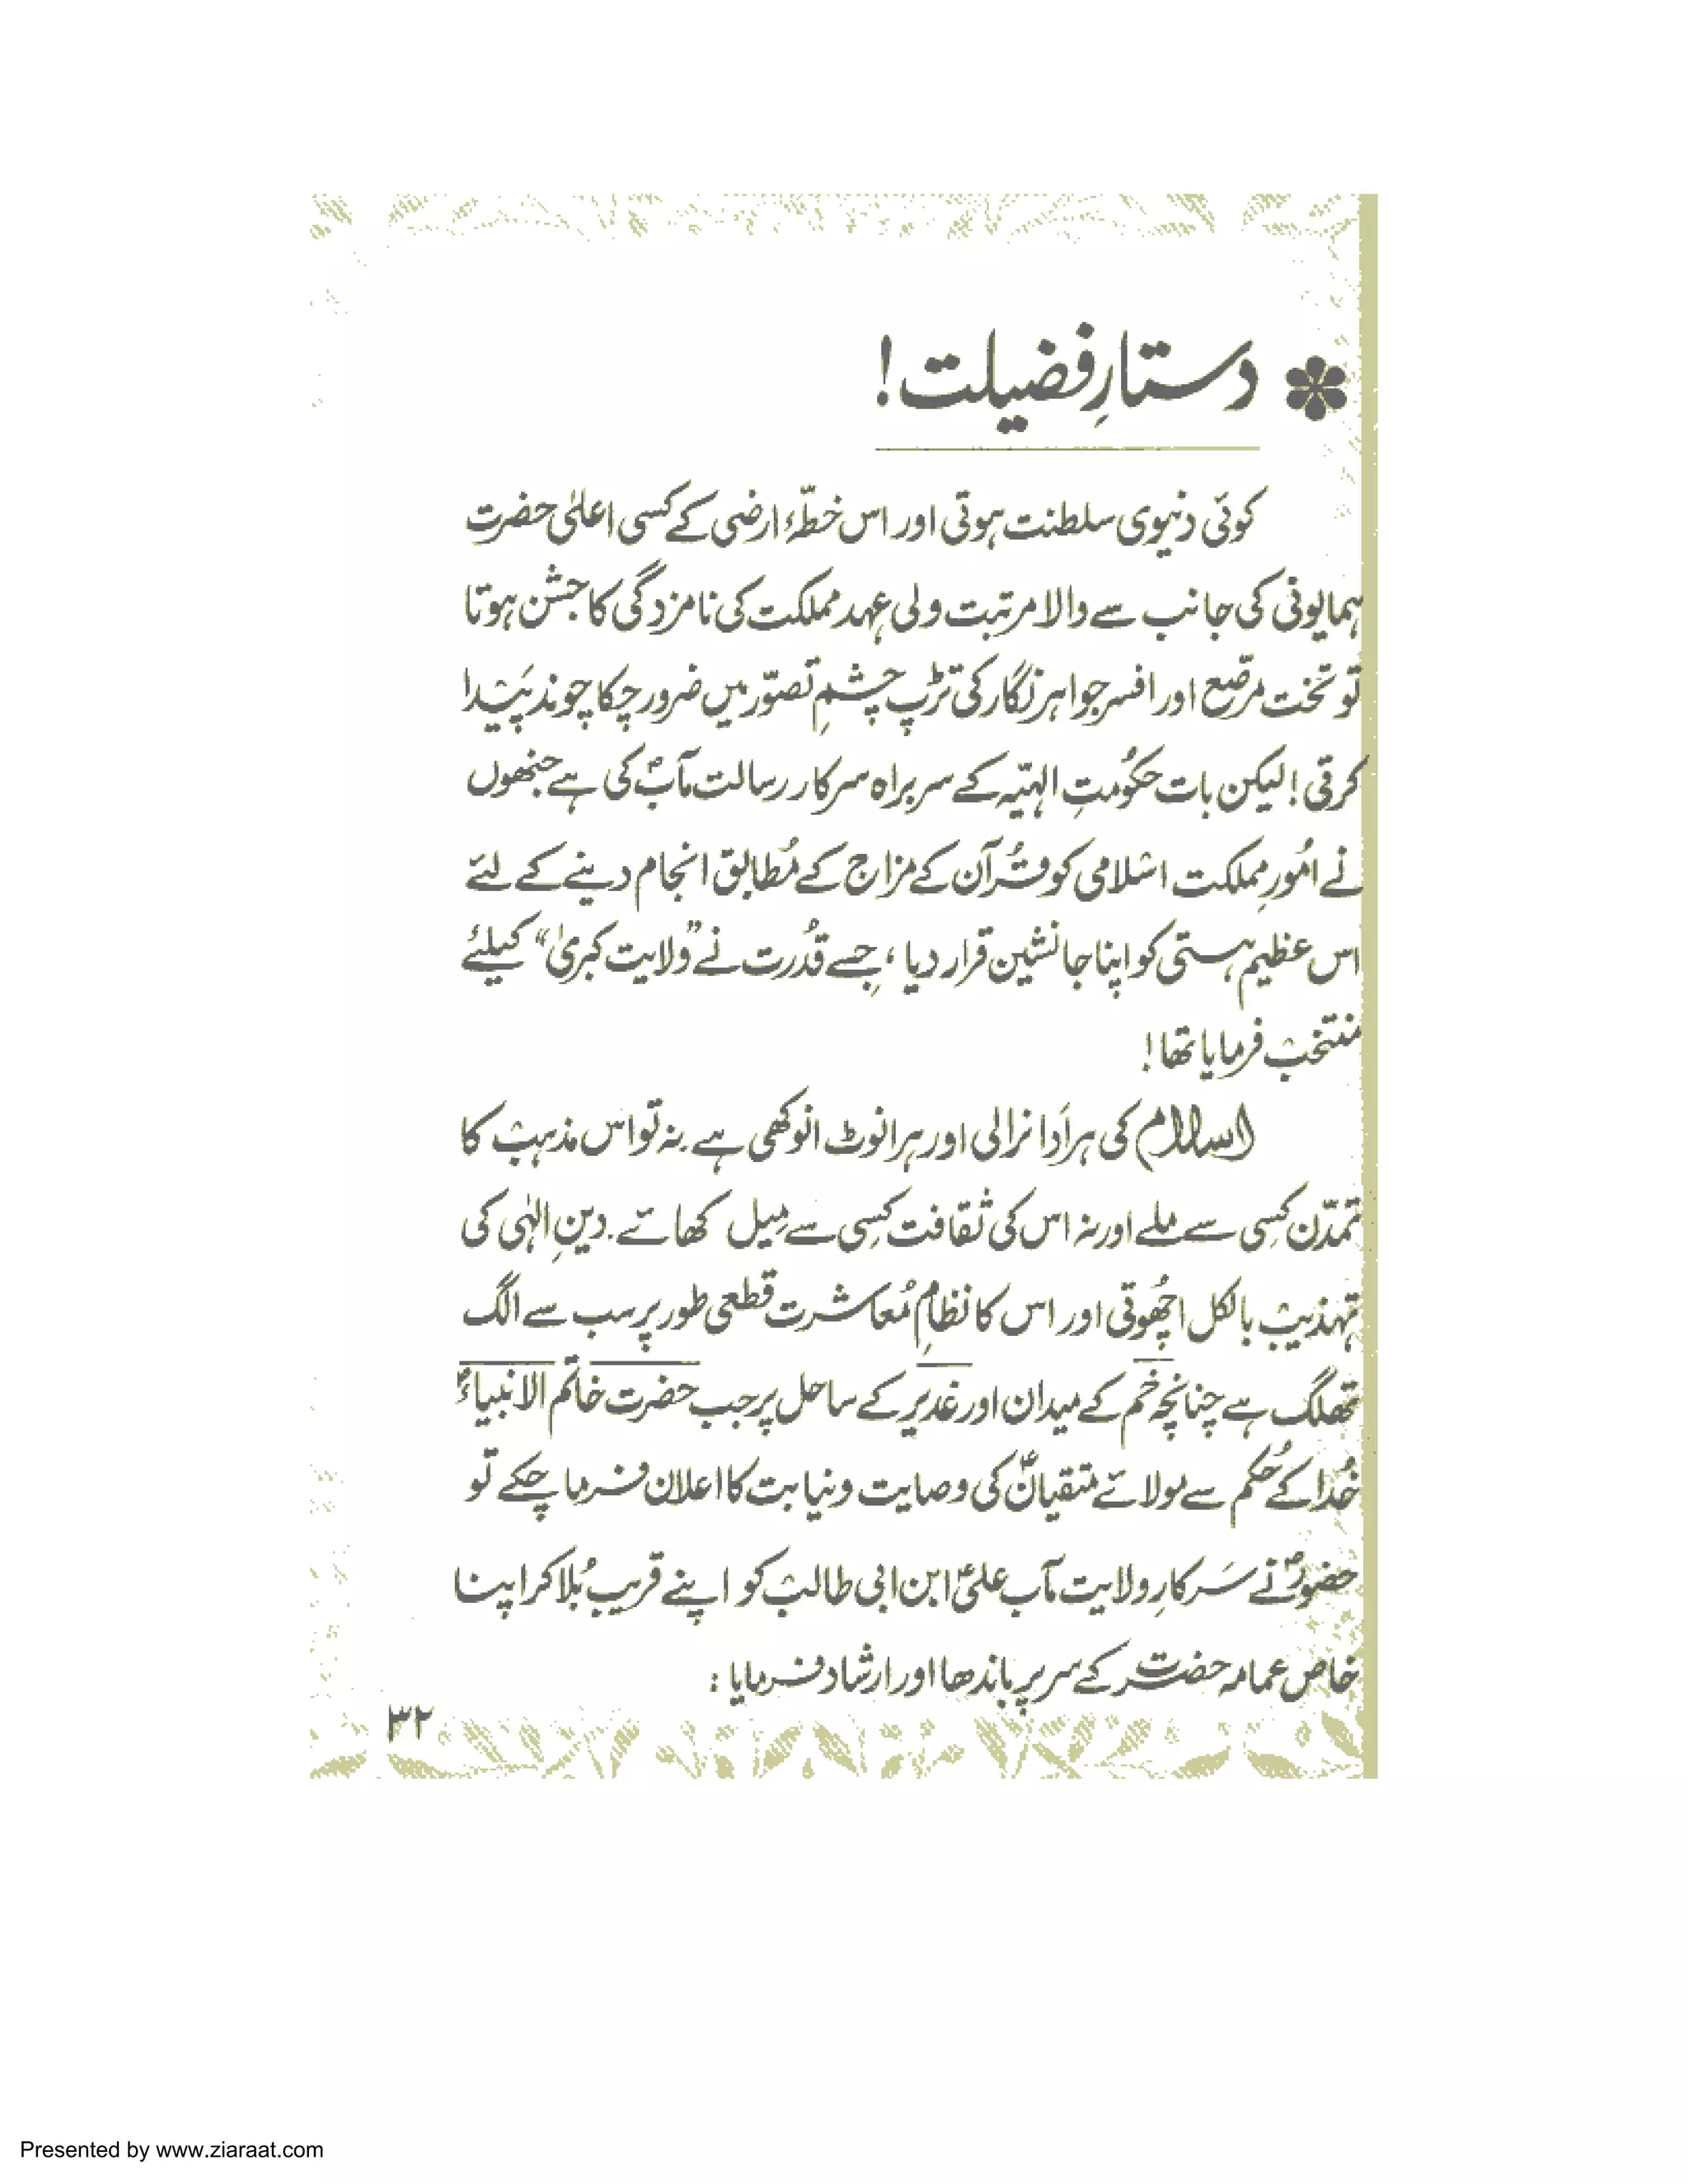 دستارِ فضیلت!
کوئی دنیوی سلطنت ہوتی اور اس خطّۂ ارضی کے کسی اعلیٰ حضرت
ہمایونی کی جانب سے والا مرتبت ولی عہد مملکت کی نامزدگی کا جشن ہوتا
تو تخت مرصّع اور افسر جواہر نگار کی تڑپ چشمِ تصوّر میں ضرور چکا چوند پَیدا
کرتی! لیکن بات حکوُمتِ الہٰیّہ کے سربراہ سرکار رسالت مآبؐ کی ہے جنھوں
نے امُورِ مملکت اسْلامی کو قُرآن کے مزاج کے مُطابق انجام دینے کے لئے
اس عظیم ہستی کو اپنا جانشین قرار دیا، جِسے قدُرت نے "ولایت کبریٰ" کیلئے
منتخبْ فرمایا تھا!
اسلام کی ہر اَدا نرالی اور ہر انوٹ انوکھی ہے۔ نہ تو اس مذہبْ کا
تمدّن کسِی سے ملے اور نہ اس کی ثقافت کسِی سے میِل کھائے۔ دینِ الہٰی کی
تہذیبْ بالکل اچھُوتی اور اس کا نظامِ مُعاشرت قطعی طور پر سب سے الگ
تھلگ ہے چنانچہ خم کے میدان اور غدیر کے ساحل پر جب حضرت خاتم الانبیاءؐ
خُدا کے حُکم سے مولائے متقیانؑ کی وصایت و نیابت کا اعلان فرما چکے تو
حضورؐ نے سَرکارِ ولایت مآب علیؑ ابن ابی طالبْ کو اپنے قریب بُلا کر اپنا
خاص عمامہ حضرت کے سر پر باندھا اور ارشاد فرمایا :
۳۲
Presented by www.ziaraat.com